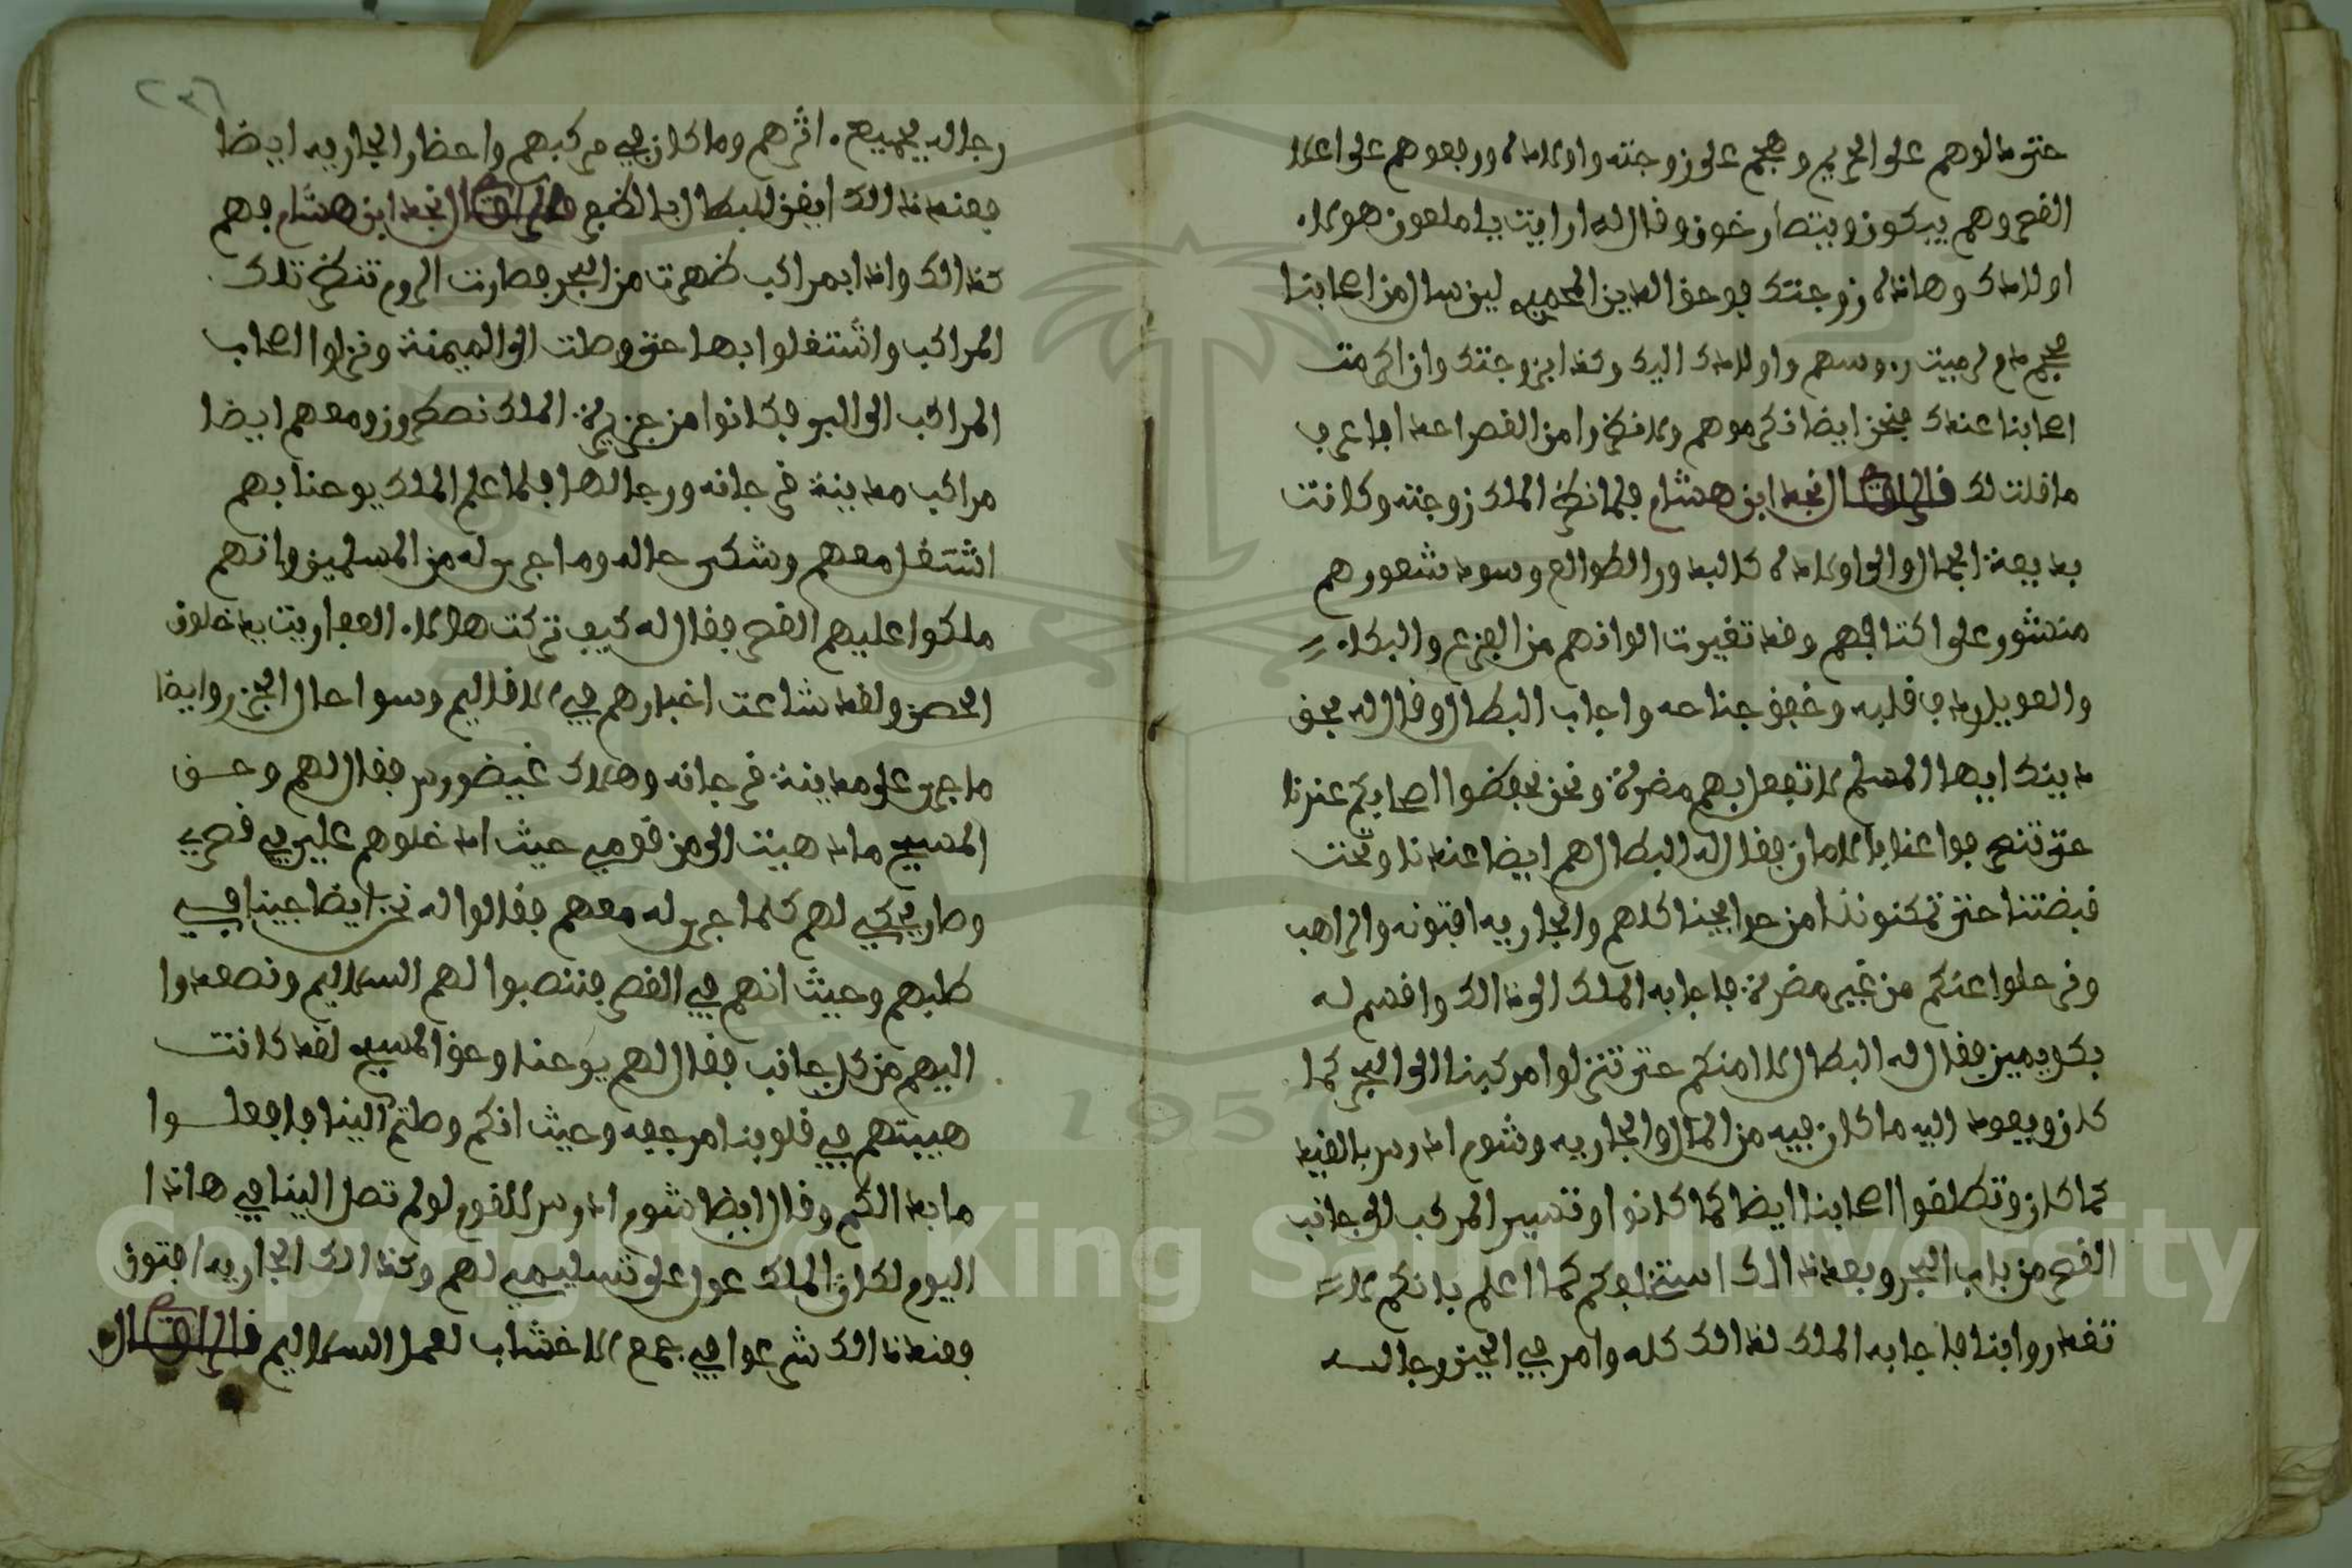 حتى مالوهم على الحريم وهجم على زوجته واولاده ورفعوهم على اعلا
القصر وهم يبكون ويتصارخون وقال له ارايت يا ملعون هولاء
اولادك وهاذه زوجتك فوحق الدين المحمديه لين سال من اصحابنا
محجم دم لرميت رءوسهم واولادك اليك وكذا زوجتك وان اكرمت
اصحابنا عندك فنحن ايضا نكرموهم ولا نضروا من القصر احد اما عرف
ما قلت لك قال الراوى نجد ابن هشام فلما نظر الملك زوجته وكانت
بديعة الجمال والى اولاده كالبدور الطوالع وسود شعورهم
منشور على اكتافهم وقد تغيرت الوانهم من الفزع والبكاء
والعويل وداب قلبه وخفق جناحه واجاب البطال وقال له بحق
دينك ايها المسلم لا تفعل بهم مضرة ونحن نحفظوا اصحابكم عندنا
حتى تنصرفوا عنا بالامان فقال له البطال هم ايضا عندنا وتحت
قبضتنا حتى تمكنوننا من حوايجنا كلهم والجاريه افتونه والراهب
ونرحلوا عنكم من غير مضرة فاجابه الملك الى ذالك واقسم له
بكل يمين فقال له البطال لا امنكم حتى تنزلوا مركبنا الى البحر كما
كان ويعود اليه ما كان فيه من المال والجاريه وشوم ادرس بالقيد
كما كان وتطلقوا اصحابنا ايضا كما كانوا وتسير المركب الى جانب
القصر من باب البحر وبعد ذالك استخلفكم كما اعلم بانكم لا
تغدروا بنا فاجابه الملك لذالك كله وامر في الحين رجاله
رجاله بجميع اثرهم وما كان في مركبهم واحضار الجاريه ايضا
فعند ذالك ايقن البطال بالطمع قال الراوى نجد ابن هشام فهم
كذالك واذا بمراكب ظهرت من البحر فصارت الروم تنظر تلك
المراكب واشتغلوا بها حتى وصلت الى الميمنة ونزلوا اصحاب
المراكب الى البر فكانوا من جزيرة الملك نصطرون ومعهم ايضا
مراكب مدينة فرجانه ورجالها فلما علم الملك يوحنا بهم
اشتغل معهم وشكى حاله وما جرى له من المسلمين وانهم
ملكوا عليهم القصر فقال له كيف تركت هولاء العفاريت يدخلون
الحصن ولقد شاعت اخبارهم في الاقاليم وسواحل الجزر وايضا
ما جرى على مدينة فرجانه وهلاك غيضورس فقال لهم وحق
المسيح ما دهيت الى من قومي حيث ادخلوهم علي في قصري
وصار يحكي لهم كلما جرى له معهم فقالوا له نحن ايضا جينا في
طلبهم وحيث انهم في القصر فننصبوا لهم السلاليم ونصعدوا
اليهم من كل جانب فقال لهم يوحنا وحق المسيح لقد كانت
هيبتهم في قلوبنا مرجفه وحيث انكم وصلتم الينا فافعلوا
ما بدا لكم وقال ايضا شوم ادرس للقوم لو لم تصل الينا في هاذا
اليوم لكان الملك عول على تسليمي لهم وكذالك الجاريه افتون
فعند ذالك شرعوا في جمع الاخشاب لعمل السلاليم قال الراوى